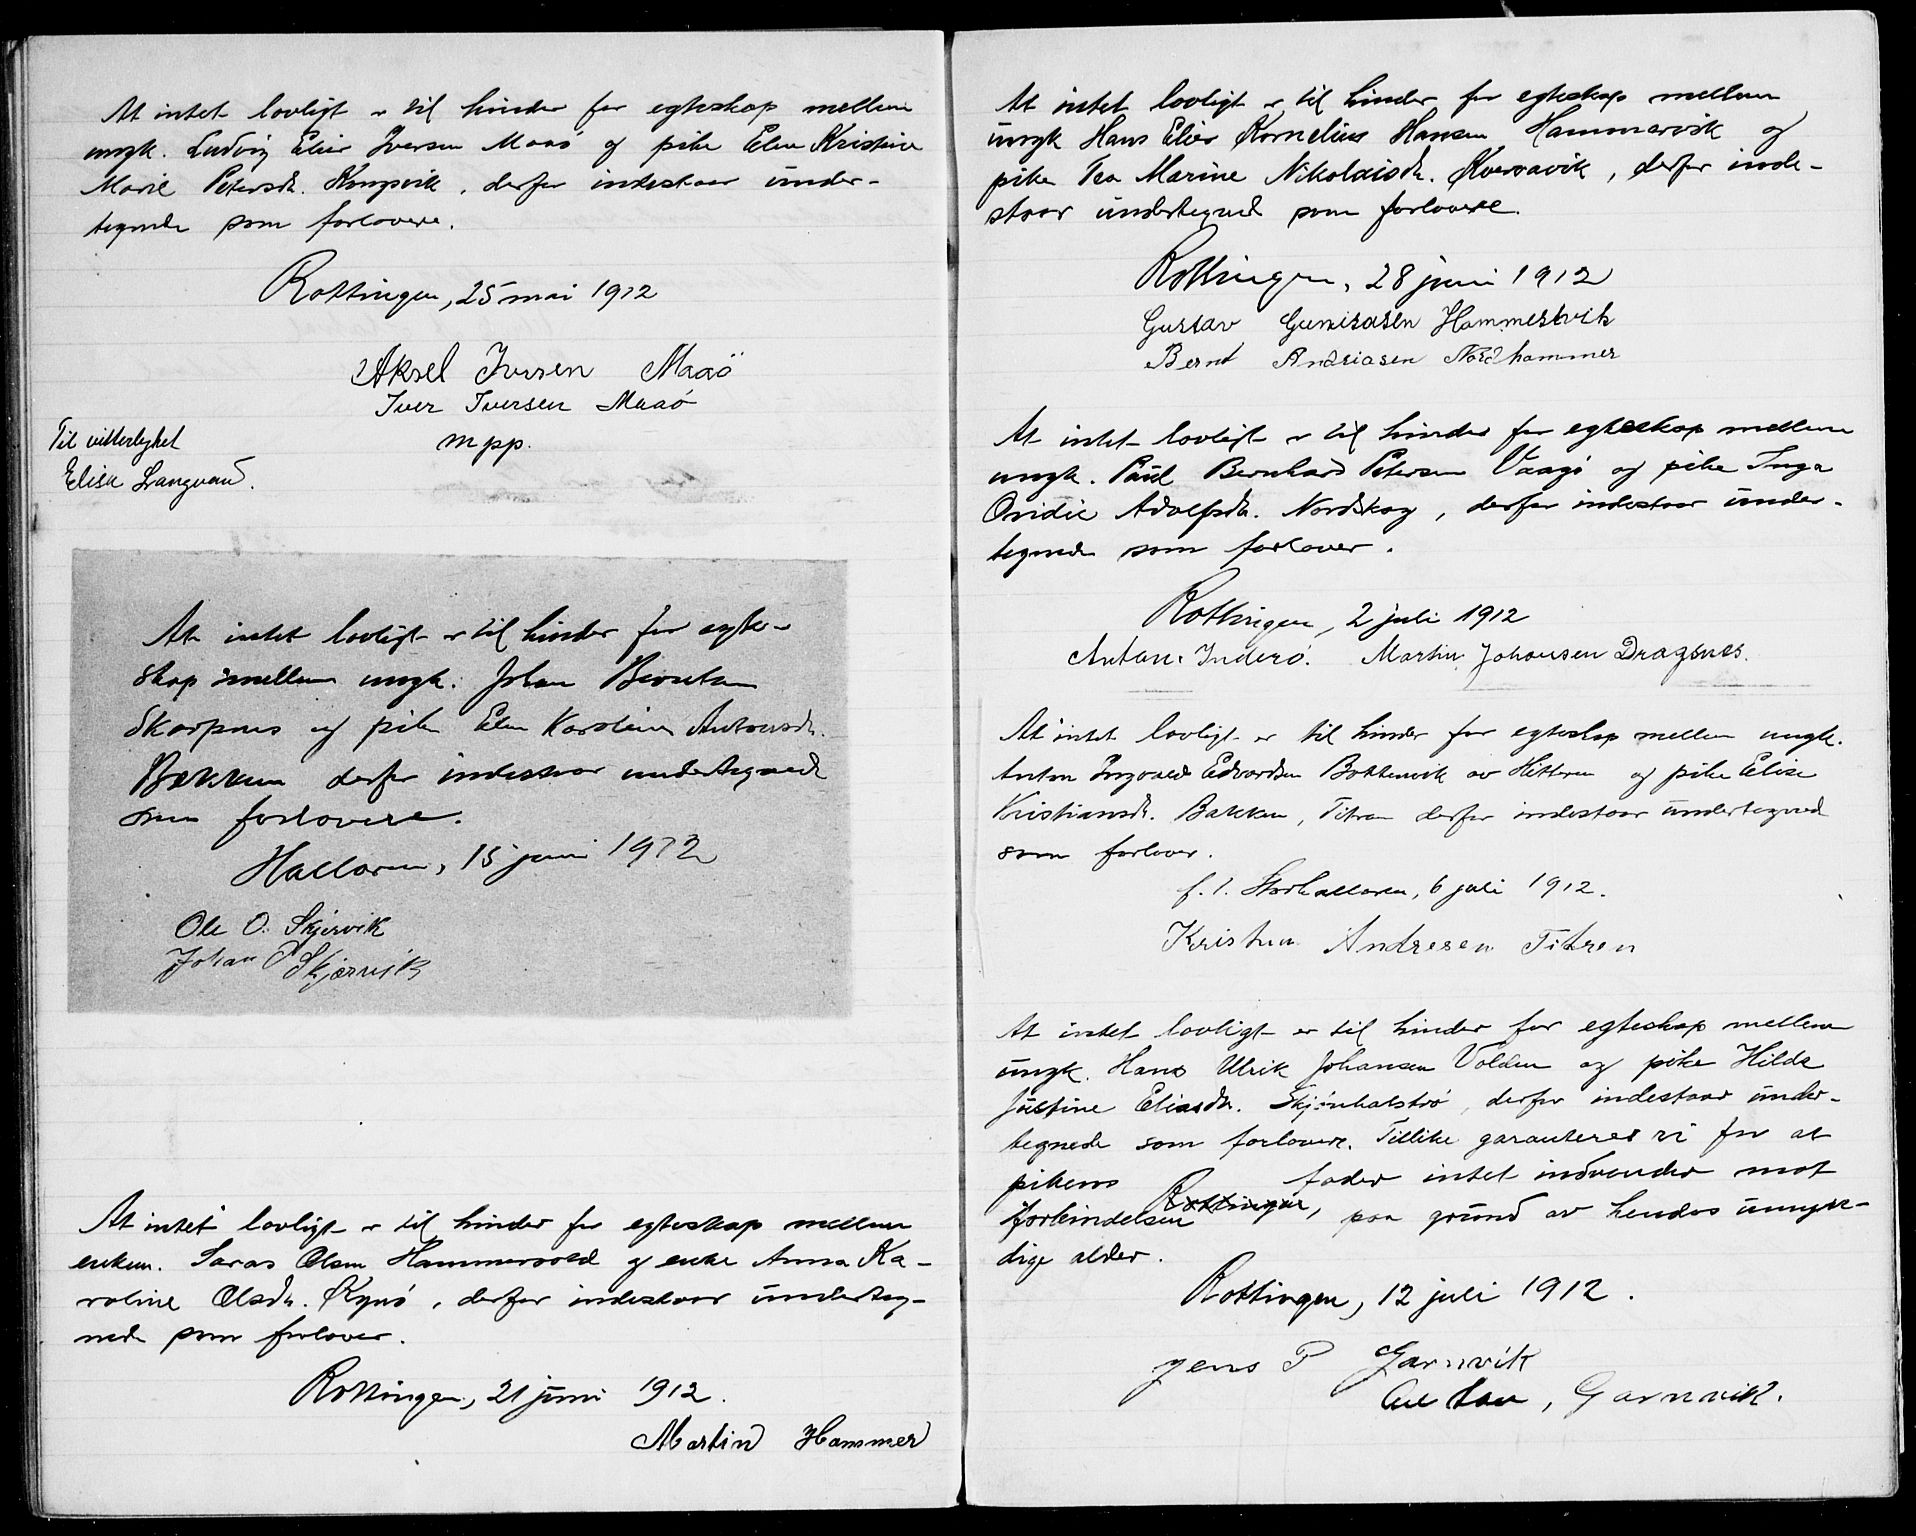 At intet lovligt er til hinder for egteskap mellem
ungk. Ludvig Elier Iversen Maaö og pike Elen Kristine
Marie Petersdr. , derfor indestaar under-
tegnede som forlovere.
Rottingen, 25 mai 1912
Aksel Iversen Maaö
Iver Iversen Maaö
mpp.
Til vitterlighet
Elisa Langvand.
At intet lovligt er til hinder for egte-
skap mellem ungk. Johan Berntsen
Skarpnes og pike Elen Karoline Antonsdr.
Bakken derfor indestaar undertegnede
som forlovere.
Hallaren, 15 juni 1912
Ole O. Skjervik
Johan P Skjærvik
At intet lovligt er til hinder for egteskap mellem
enkem. Olsen Hammervold og enke Anna Ka-
roline Olsdr. , derfor indestaar underteg-
nede som forlover.
Rottingen, 21 juni 1912.
Martin Hammer
At intet lovligt er til hinder for egteskap mellem
ungk Hans Elier Kornelius Hansen Hammervik og
pike Tea Marine Nikolaisdr. Kvervavik, derfor inde-
staar undertegned som forlovere.
Rottingen, 28 juni 1912
Gustav Hammerlvik
Bernt Andriasen Nordhammer
At intet lovligt er til hinder for egteskap mellem
ungk. Paul Bernhard Petersen Vaagö og pike Inga
Ovidie Adolfsdr. Nordskag, derfor indestaar under-
tegnede som forlover.
Rottingen, 2 juli 1912
Anton Inderö. Martin Johansen Dragsnes.
At intet lovligt er til hinder for egteskap mellem ungk.
Anton Ingvald Edvardsen Bottenvik av Hitteren og pike Elise
Kristiansdr. Bakken, Titran derfor indestaar undertegned
som forlover.
f. t. Storhallaren, 6 juli 1912.
Kristian Andresen Titren
At intet lovligt er til hinder for egteskap mellem
ungk. Hans Ulrik Johansen Volden og pike Hilda
Justine Eliasdr. Skjönhalsö, derfor indestaar under-
tegnede som forlovere. Tillike garanterer vi for at
pikens fader intet indvender mot
forbindelsen Rottingen, paa grund av hendes umyn-
dige alder.
Rottingen, 12 juli 1912.
Jens P Garnvik
Anton, Garnvik.